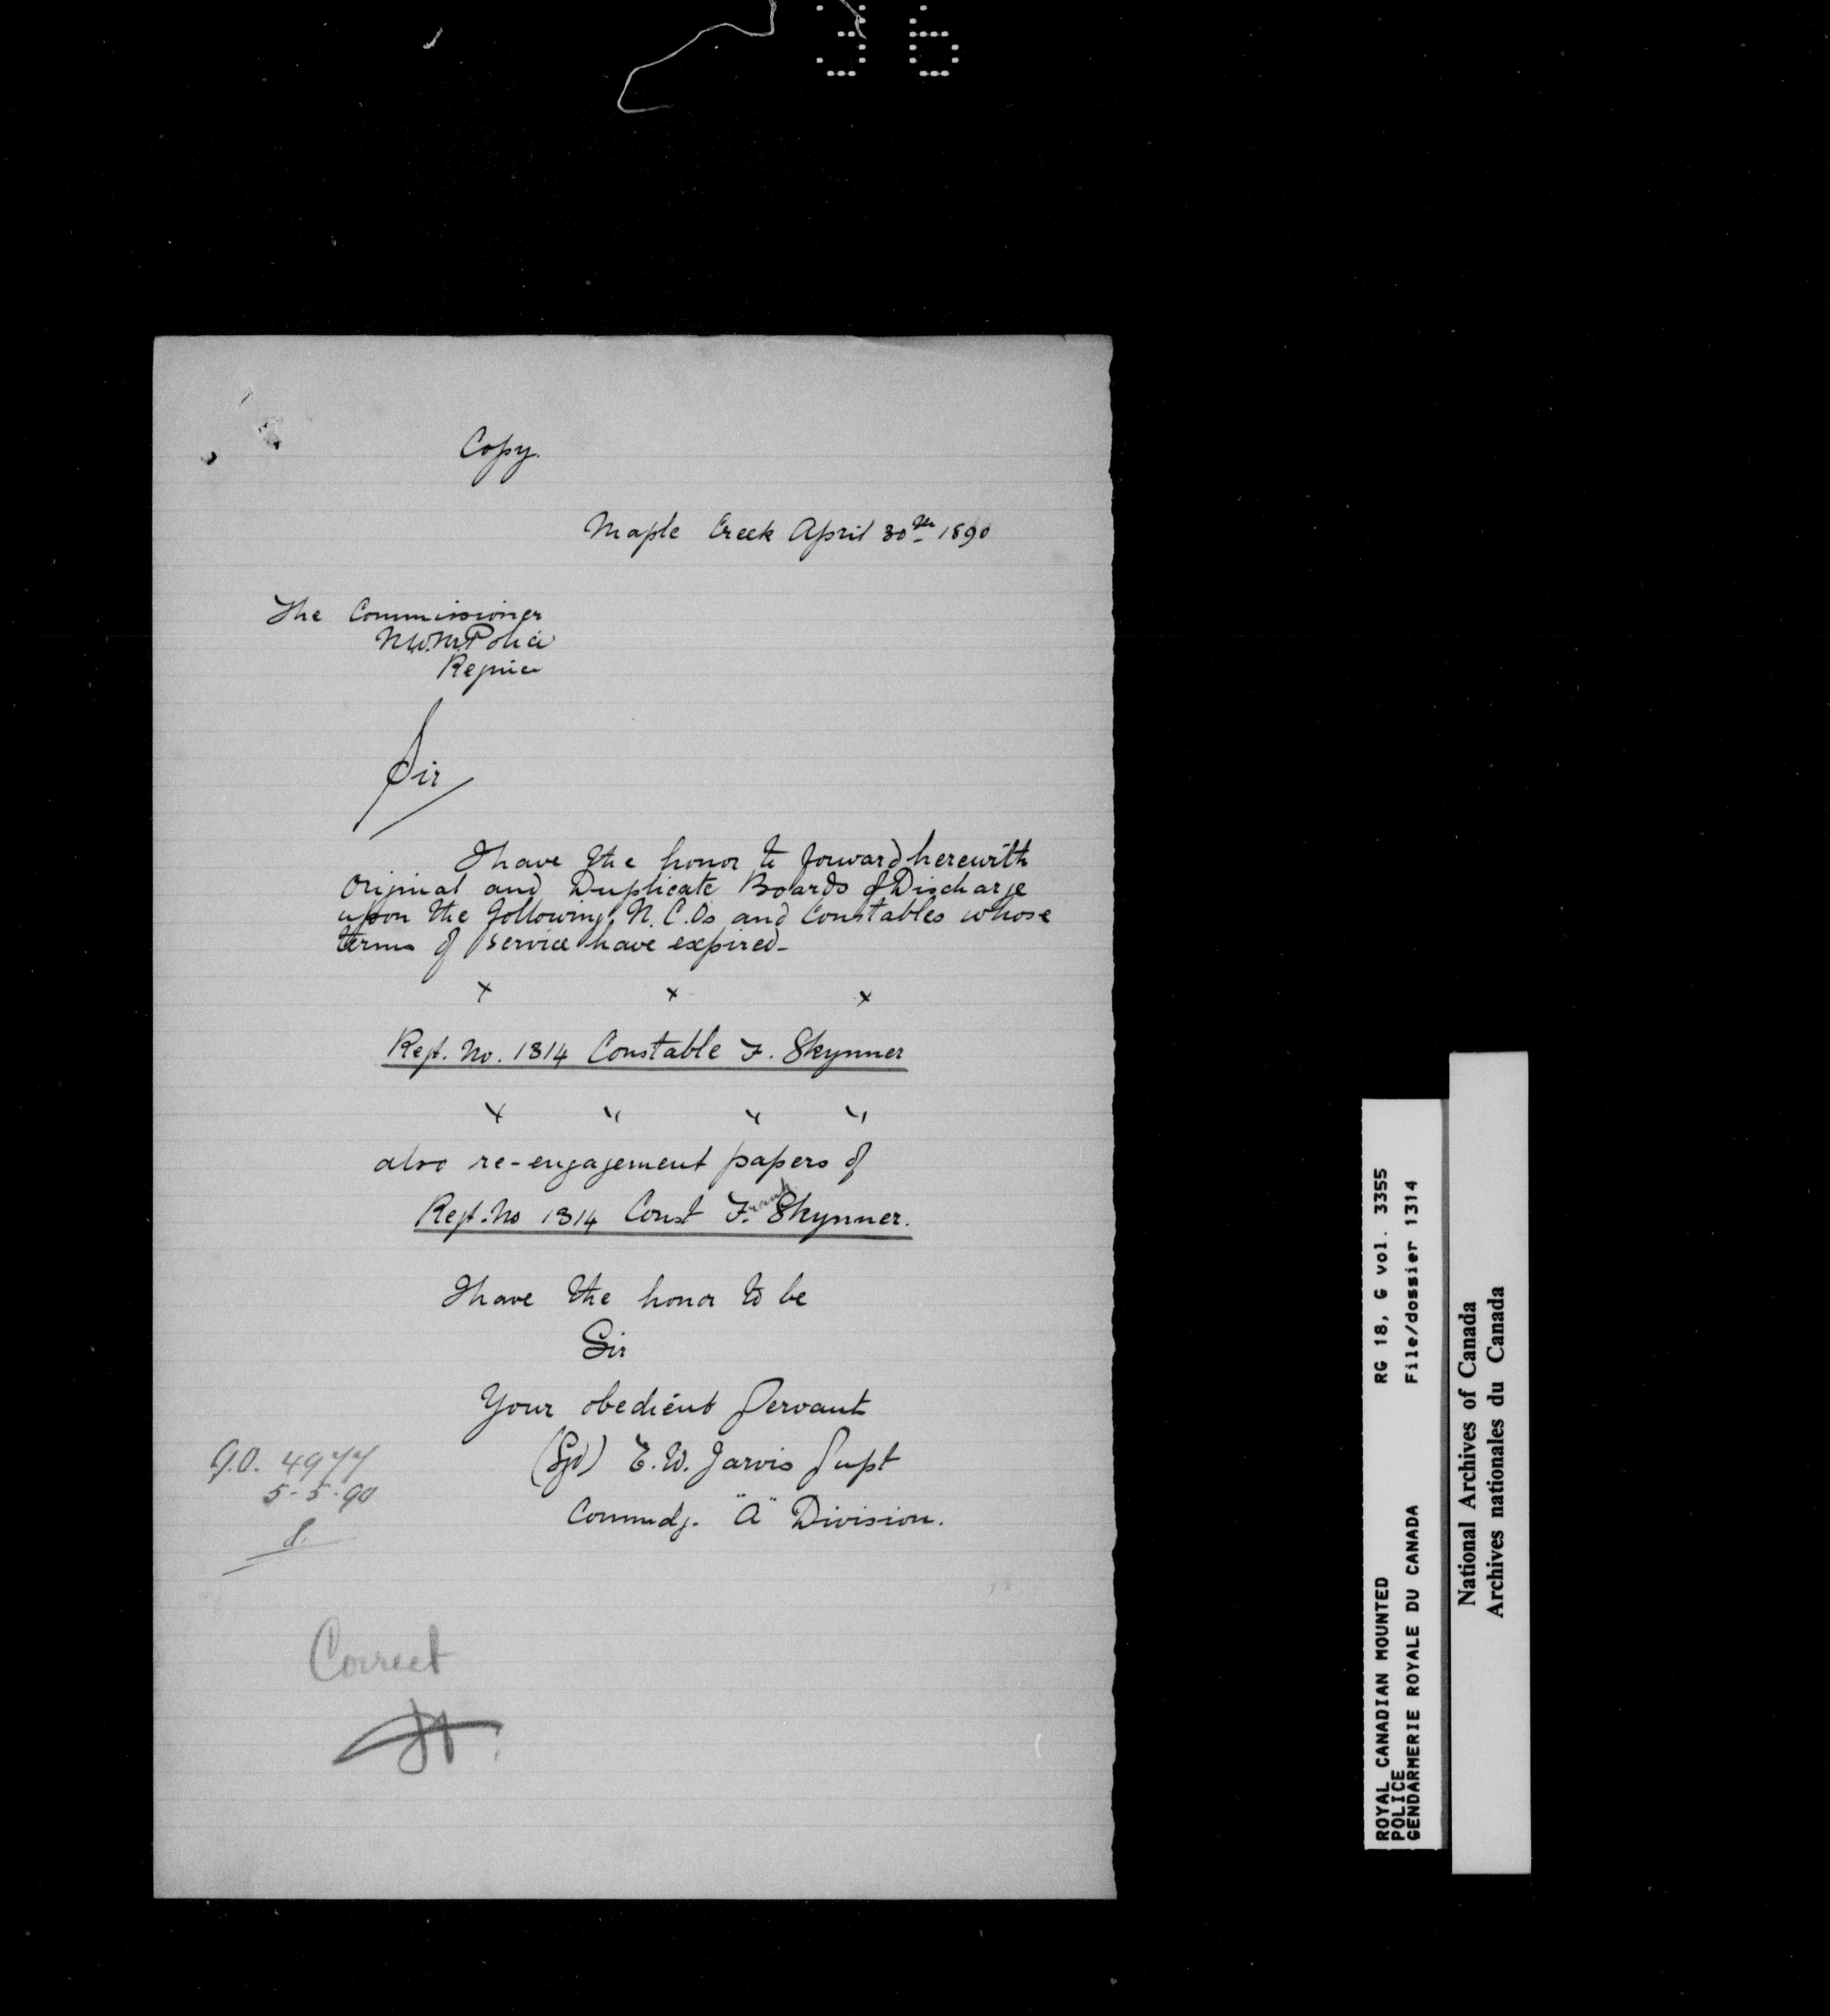 36
Copy.
Maple Creek April 30th 1890
The Commissioner
N.W.M.Police
Regina
Sir
I have the honor to forward herewith
Original and Duplicate Boards of Discharge
upon the following, N.C.Os and Constables whose
terms of service have expired-
x x x
Regt. No. 1314 Constable F. Skynner
x " " "
also re-engagement papers of
Regt. No 1314 Const Frank Skynner.
I have the honor to be
Sir
Your obedient Servant
(Sgd) E.W. Jarvis Supt
Commdg. "A" Division.
G.O. 4977
5-5-90
Correct
ROYAL CANADIAN MOUNTED
POLICE
GENDARMERIE ROYALE DU CANADA
RG 18, G vol. 3355
File/dossier 1314
National Archives of Canada
Archives nationales du Canada